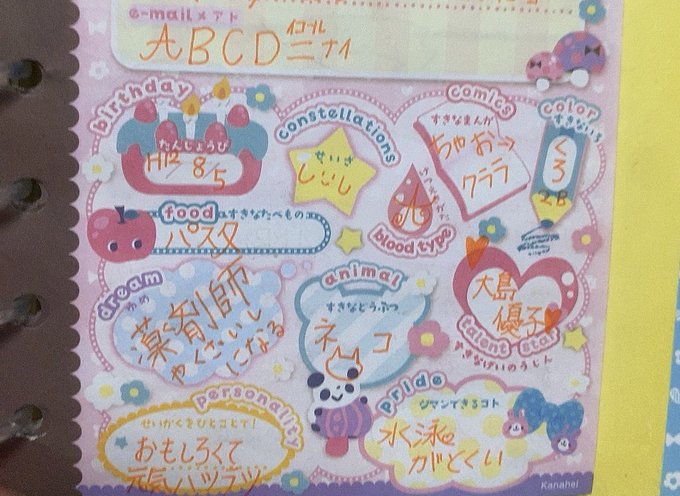 e-mail メアド
ABCD ニ ナイ
イコール
birthday
たんじょうび
H12/8/5
constellations
せいざ
ししし
comics
すきなまんが
ちゃお→
クララ
color
すきないろ
くろ
2B
food すきなたべもの
パスタ
blood type
A
dream
ゆめ
薬剤師
やくざいし
になる
animal
すきなどうぶつ
ネコ
大島
優子
talent star
すきなげいのうじん
personality
せいかくをひとことで!
おもしろくて
元気ハツラツ
pride
ジマンできるコト
水泳
がとくい
Kanahei